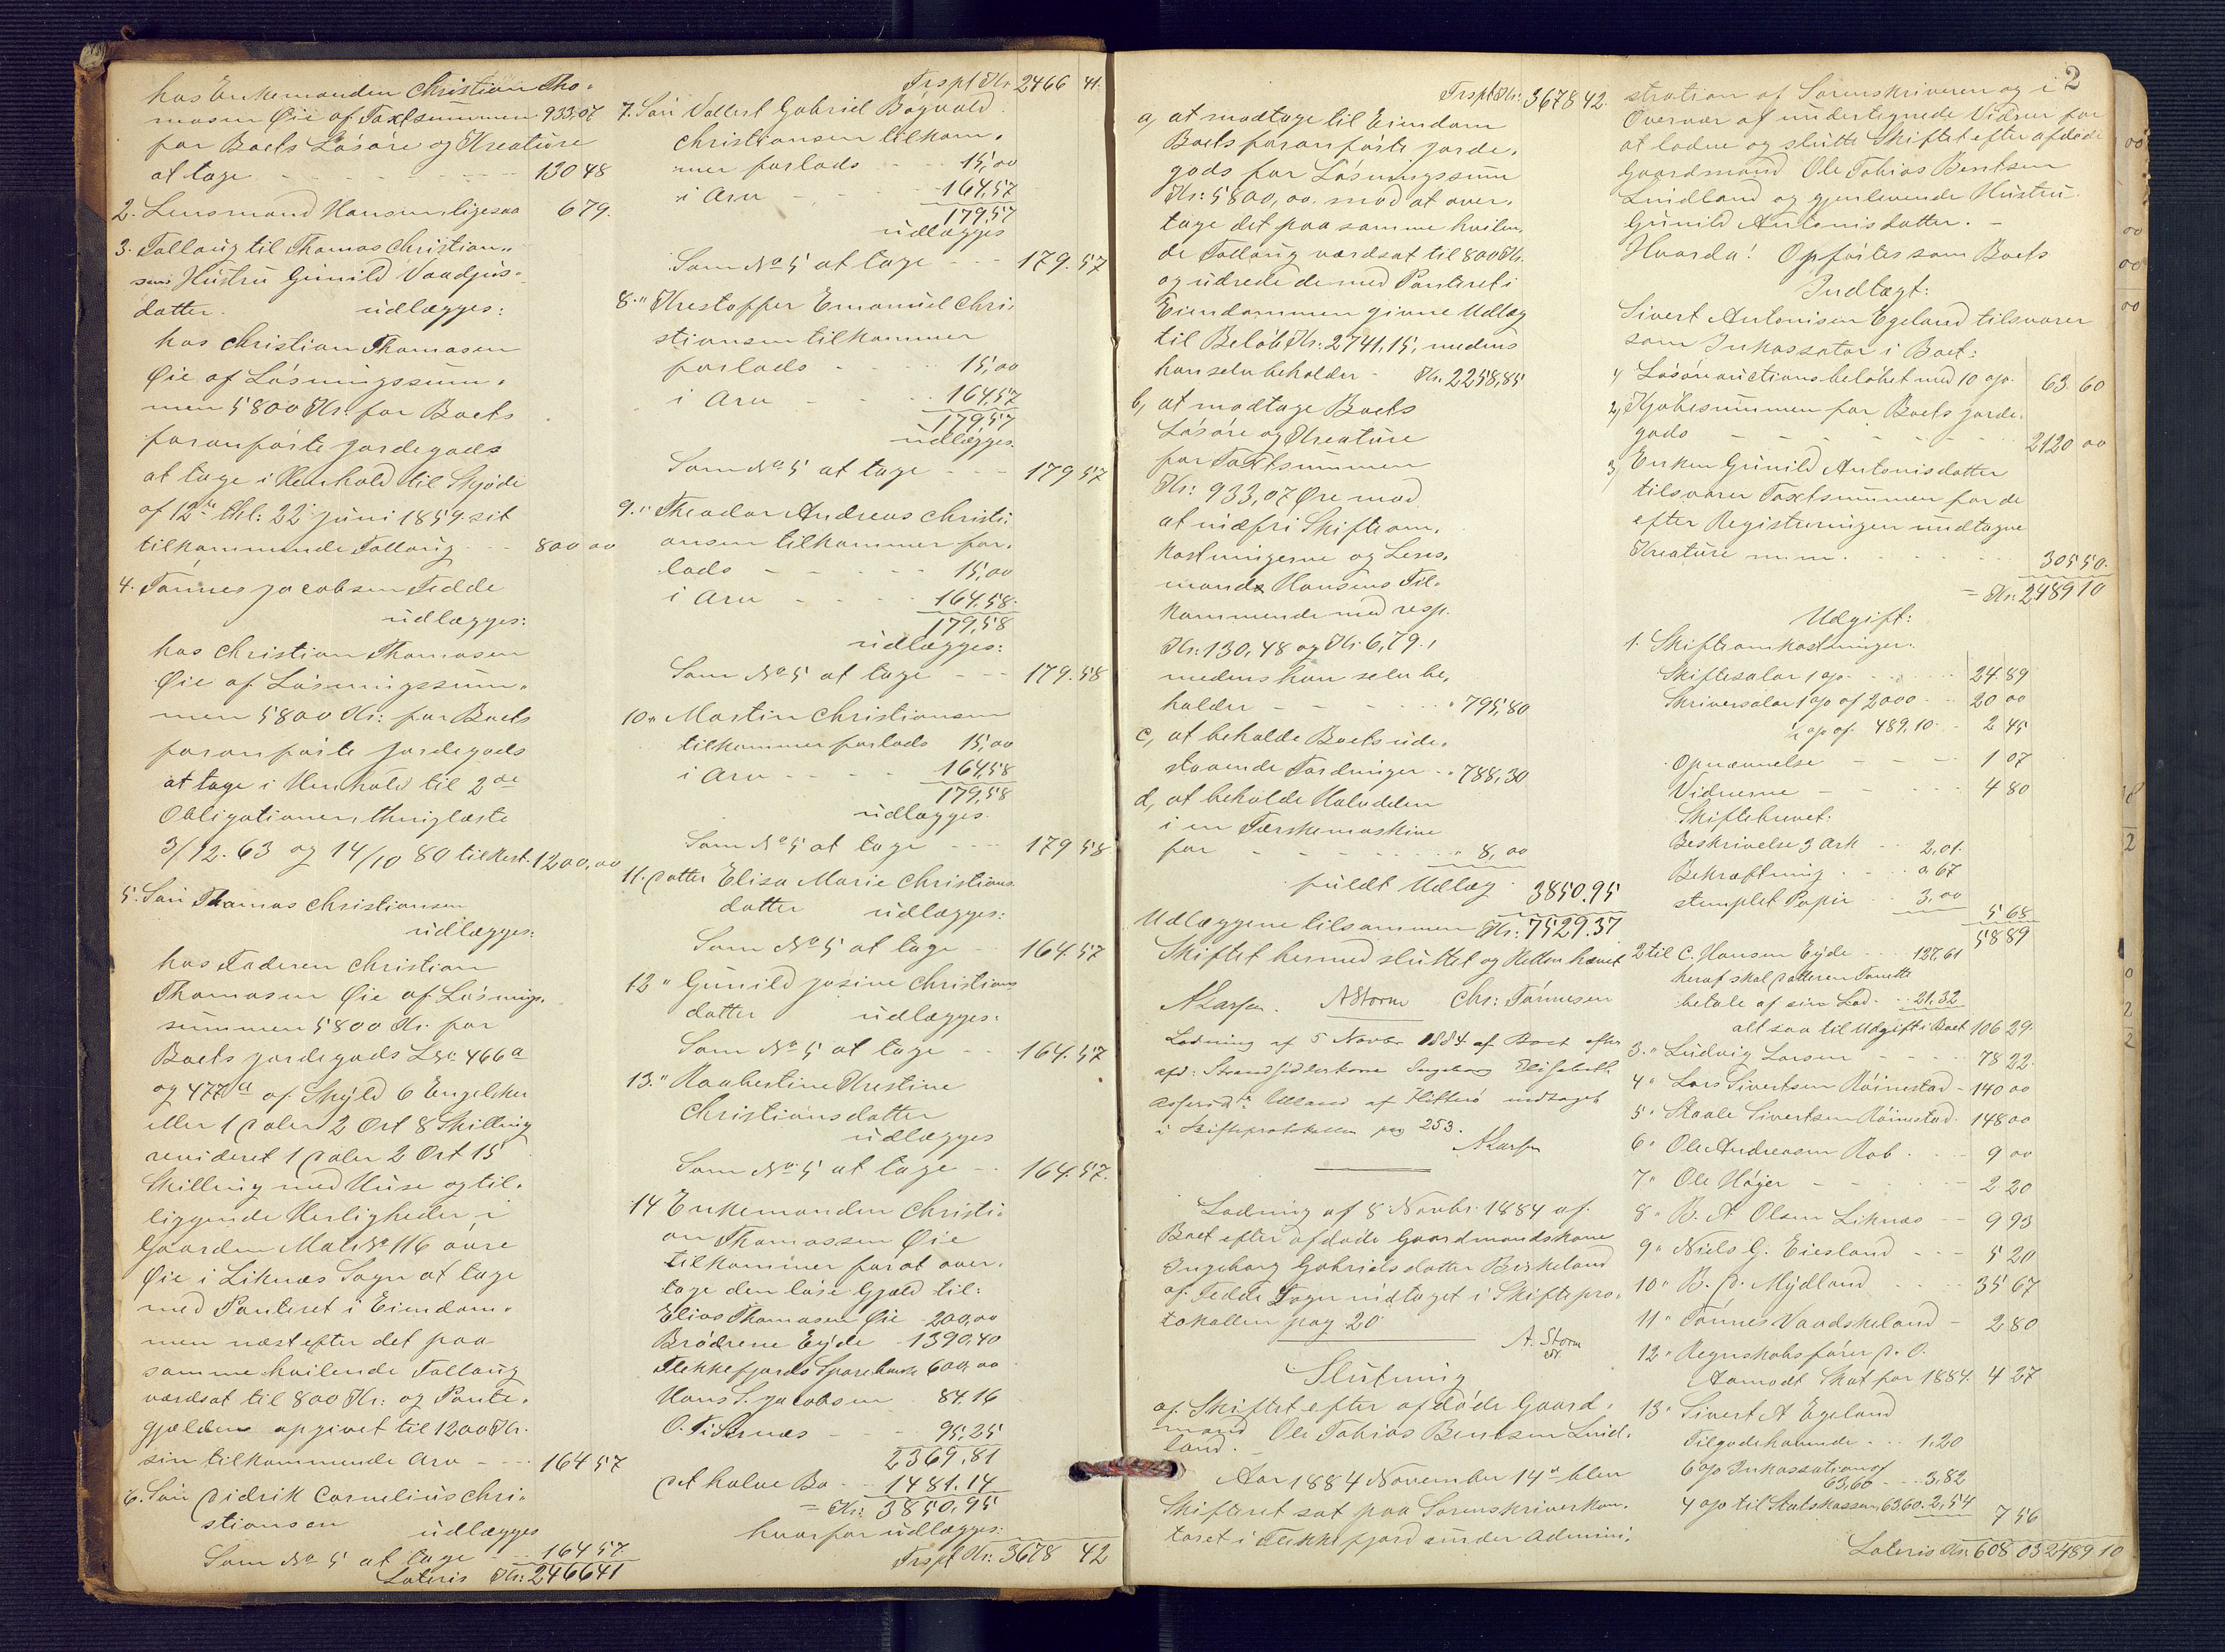 hos Enkemanden Christian Tho-
masen Øie af Taxtsummen 933,07
for Boets Løsøre og Kreature
at tage - - - 130 48
2. Lensmand Hansen ligesaa 6 79.
3. Follaug til Thomas Christian-
sens Hustru Gunild Vaadjus-
datter. udlægges:
hos Christian Thomasen
Øie af Løsningssum-
men 5800 Kr. for Boets
foranførte Jordegods
at tage i Henhold til Skjøde
af 12te thl: 22 Juni 1859 sit
tilkommende Follaug - - 800 00
4. Tønnes Jacobsen Fedde
udlægges:
hos Christian Thomasen
Øie af Løsningssum-
men 5800 Kr: for Boets
foranførte Jordegods
at tage i Henhold til 2de
Obligationer, thinglæste
3/12. 63 og 14/10 80 til Rest. 1200,00
5. Søn Thomas Christiansen
udlægges:
hos Faderen Christian
Thomasen Øie af Løsnings-
summen 5800 Kr. for
Boets Jordegods Lno 466a
og 477a af Skyld 6 Engelsker
eller 1 Daler 2 Ort 8 Skilling
revideret 1 Daler 2 Ort 15
Skilling med Huse og til-
liggende Herligheder i
Gaarden Matr No 116 øvre
Øie i Liknæs Sogn at tage
med Panteret i Eiendom-
men næst efter det paa
samme hvilende Follaug
værdsat til 800 Kr: og Pante-
gjælden opgivet til 1200 Kr.
sin tilkommende Arv - - - 164 57
6. Søn Didrik Cornelius Chri-
stiansen udlægges
Som No 5 at tage - - 164 57.
Lateris Kr: 2466 41
Trspt Kr: 2466 41.
7. Søn Vallert Gabriel Bøgvald
Christiansen tilkom-
mer forlods - - 15,00
i Arv - - 164,57
179,57
udlægges
Som No 5 at tage - - - 179.57
8. " Krestoffer Emanuel Chri-
stiansen tilkommer
forlods - - 15,00
i Arv - - 164,57
179,57
udlægges.
Som No 5 at tage - - - 179 57
9. " Theodor Andreas Christi-
ansen tilkommer for-
lods - - - 15,00
i Arv - - 164,58.
179,58
udlægges:
Som No 5 at tage - - - 179.58
10 " Martin Christiansen
tilkommer forlods 15,00
i Arv - - - 164,58
179,58
udlægges.
Som No 5 at tage - - - 179 58
11. Datter Elisa Marie Christians
datter udlægges:
Som No 5 at tage - - 164.57
12 " Gunild Josine Christians
datter udlægges:
Som No 5 at tage - - 164.57
13. " Raabertine Krestine
Christiansdatter
udlægges
Som No 5 at tage - - 164.57.
14 Enkemanden Christi-
an Thomassen Øie
tilkommer for at over-
tage den løse Gjæld til:
Elias Thomasen Øie - 200,00
Brødrene Eyde - 1390,40
Flekkefjords Sparebank 600,00
Hans S. Jacobsen 84.16
O. Fi - - 95,25
2369,81
Det halve Bo - - 1481.14
= Kr: 3850,95
hvorfor udlægges:
Trspt Kr: 3678 42
Trspt Kr: 3678 42.
a, at modtage til Eiendom
Boets foranførte Jorde-
gods for Løsningssum
Kr: 5800,00. mod at over-
tage det paa samme hvilen-
de Follaug værdsat til 800 Kr.
og udrede de med Panteret i
Eiendommen givne Udlæg
til Beløb Kr: 2741,15, medens
han selv beholder - Kr. 2258,85
b, at modtage Boets
Løsøre og Kreature
for Taxtsummen
Kr: 933,07 Øre mod
at indfri Skifteom-
kostningerne og Lens-
mands Hansens Til-
kommende med resp.
Kr: 130,48 og Kr. 6,79.,
medens han selv be-
holder - - - " 795,80
c, at beholde Boets ude-
staaende Fordringer - " 788,30
d, at beholde Halvdelen
i en Tærskemaskine
for - - - " 8,00
fuldt Udlæg 3850.95
Udlæggene tilsammen Kr: 7529.37
Skiftet hermed sluttet og Retten hævet
A Storm Chr: Tønnesen
Lodning af 5 Novbr 1884 af Boet efter
afd: Strandsidderkone Ingeborg Elisabeth
af Hitterø indtaget
i Skifteprotokollen pag 253.
Lodning af 8 Novbr. 1884 af
Boet efter afdøde Gaardmandskone
Ingeborg Gabrielsdatter Birkeland
af Fedde Sogn indtaget i Skiftepro-
tokollen pag 20
A. Storm
Slutning
af Skiftet efter afdøde Gaard-
mand Ole Tobias Bentsen Lind-
land. -
Aar 1884 November 14de blev
Skifteret sat paa Sorenskriverkon-
toret i Flekkefjord under Admini-
2
stration af Sorenskriveren og i
Overvær af undertegnede Vidner for
at lodne og slutte Skiftet efter afdøde
Gaardmand Ole Tobias Bentsen
Lindland og gjenlevende Hustru
Gunild Antonisdatter. -
Hvorda: Opførtes som Boets
Indtægt:
Sivert Antonisen Egeland tilsvarer
som Inkassator i Boet:
1, Løsøreauctionsbeløbet med 10 o/o. 63. 60
2, Kjøbesummen for Boets Jorde-
gods - - - 2120 00
3, Enken Gunild Antonisdatter
tilsvarer Taxtsummen for de
efter Registreringen undtagne
Kreature m.m. - - 305 50.
= Kr: 2489 10
Udgift:
1. Skifteomkostninger.
Skiftesalar 1 o/o - - 24.89
Skriversalar 1 o/o af 2000 - - 20 00
1/2 o/o af 489.10 - 2 45
Opnævnelse - - - 1 07
Vidnerne - - - 4 80
Skiftebrevet:
Beskrivelse 3 Ark - - 2.01.
Bekræftning - - 0 67
stemplet Papir - - 3.00
5 68
58 89
2 til C. Hansen Eyde - - 127,61
heraf skal Datteren Tonette
betale af sin Lod - - 21,32
altsaa til Udgift i Boet 106 29.
3. " Ludvig Larsen - - - 78 22.
4 " Lars Sivertsen Røinestad - 140 00
5 " Staale Sivertsen Røinestad - 148 00
6 " Ole Andreasen Rob - - - 9 00
7 " Ole Høyer - - - 2 20
8 " B. A Olsen Liknæs - - 9 93
9 " Niels G. Eiesland - - - 5 20
10 " B. D. Mydland - - - 35 67
11 " Tønnes Vaadskeland - 2 80
12 " Regnskabsfører D. O.
Aamodt Skat for 1884. 4 27
13 " Sivert A Egeland
Tilgodehavende - - 1.20
6 o/o Inkassation af
63,60 - - 3.82
4 o/o til Statskassen 63,60. 2,54
7 56
Lateris Kr: 608 03 2489 10